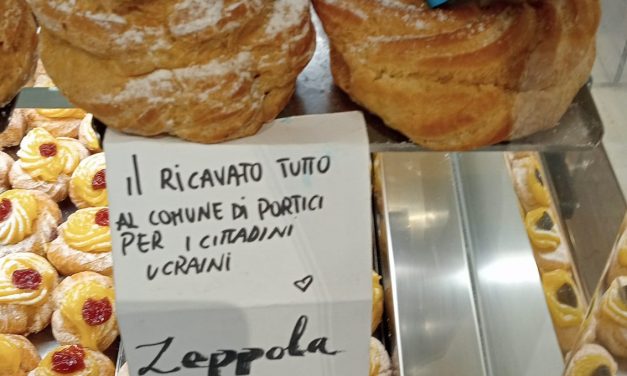 Il RICAVATO TUTTO
AL COMUNE Di PORTICI
PER I CITTADINI
UCRAINI
Zeppola